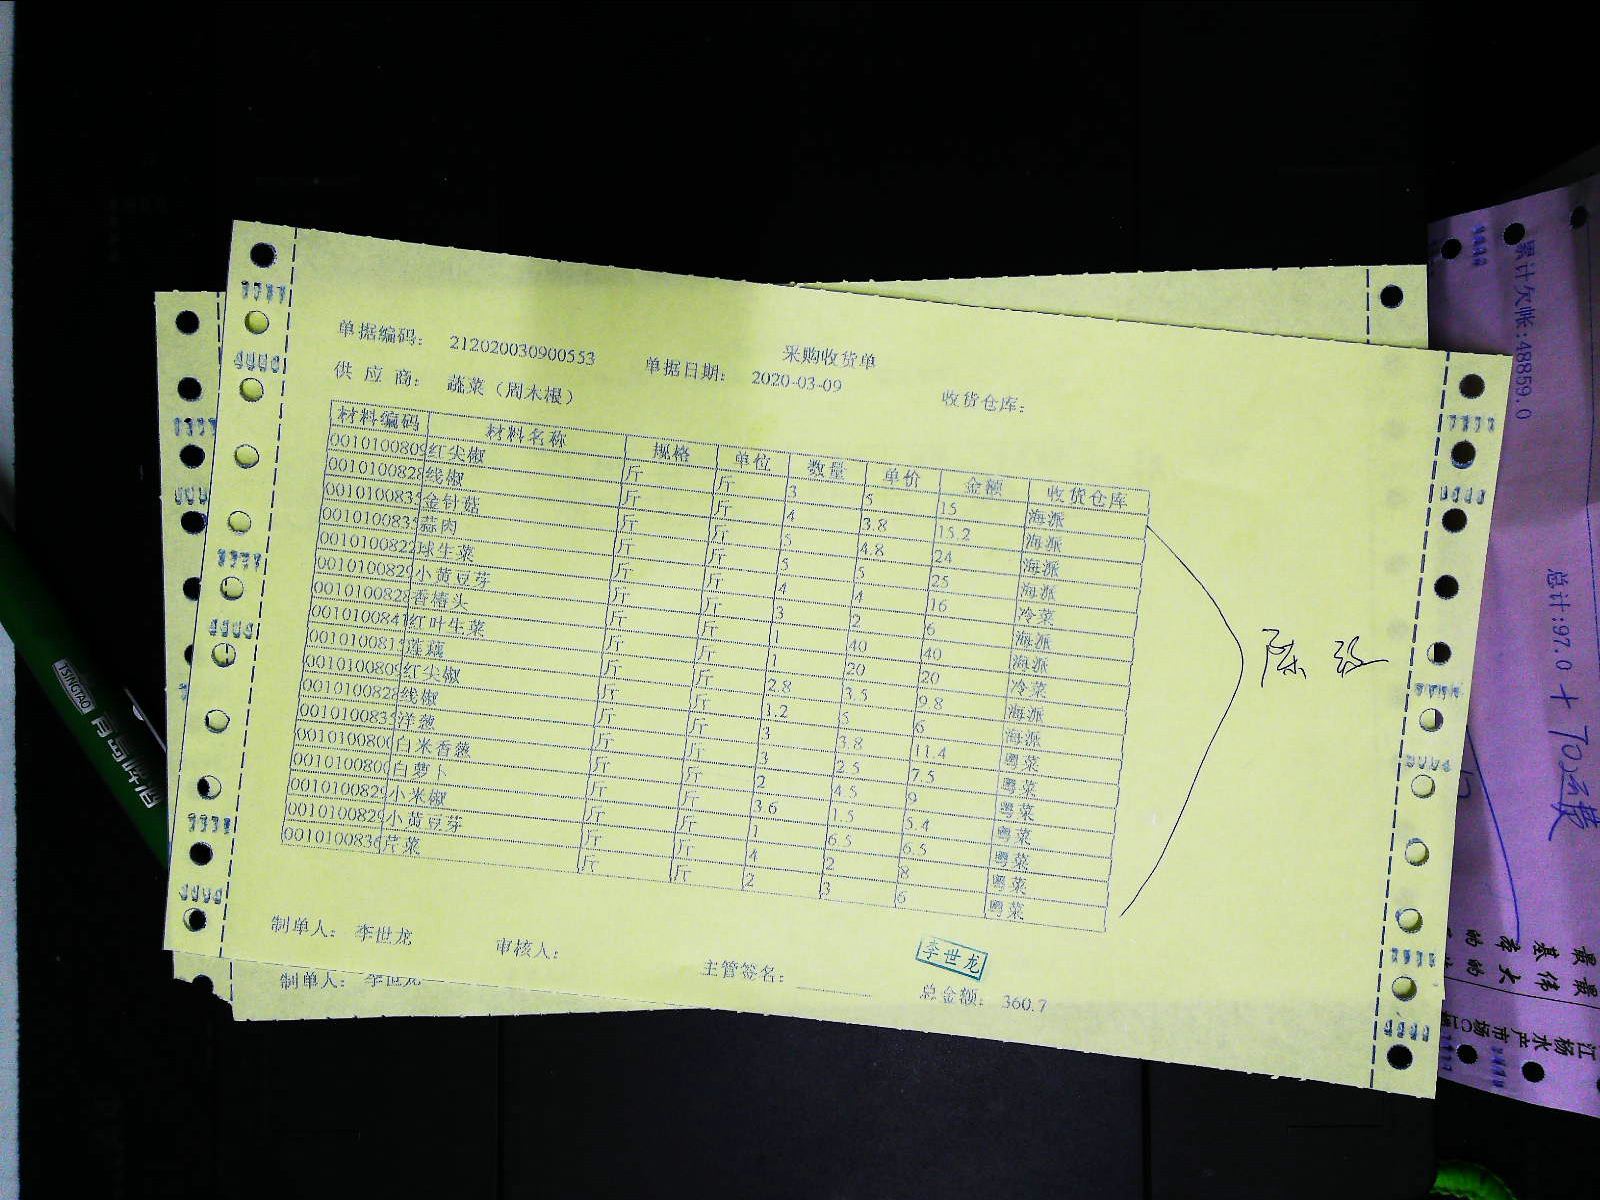 采购收货单
单据编码: 212020030900553 单据日期: 2020-03-09 收货仓库:
供 应 商: 蔬菜(周木根)
材料编码 材料名称 规格 单位 数量 单价 金额 收货仓库
0010100809 红尖椒 斤 斤 3 5 15 海派
0010100828 线椒 斤 斤 4 3.8 15.2 海派
001010083 金针菇 斤 斤 5 4.8 24 海派
001010083 蒜肉 斤 斤 5 5 25 海派
0010100822 球生菜 斤 斤 4 4 16 冷菜
0010100829 小黄豆芽 斤 斤 3 2 6 海派
0010100828 香椿头 斤 斤 1 40 40 海派
001010084 红叶生菜 斤 斤 1 20 20 冷菜
001010081 莲藕 斤 斤 2.8 3.5 9.8 海派
0010100809 红尖椒 斤 斤 1.2 5 6 海派
0010100828 线椒 斤 斤 3 3.8 11.4 粤菜
001010083 洋葱 斤 斤 3 2.5 7.5 粤菜
001010080 白米香葱 斤 斤 2 4.5 9 粤菜
001010080 白萝卜 斤 斤 3.6 1.5 5.4 粤菜
0010100829 小米椒 斤 斤 1 6.5 6.5 粤菜
0010100829 小黄豆芽 斤 斤 4 2 8 粤菜
001010083 芹菜 斤 斤 2 3 6 粤菜
制单人: 李世龙 审核人: 主管签名: 李世龙
总金额: 360.7
制单人: 李世龙
陈
累计欠帐:48859.0
总计:97.0 + 70运费
江杨水产市场C1
TSINGTAO
青岛啤酒